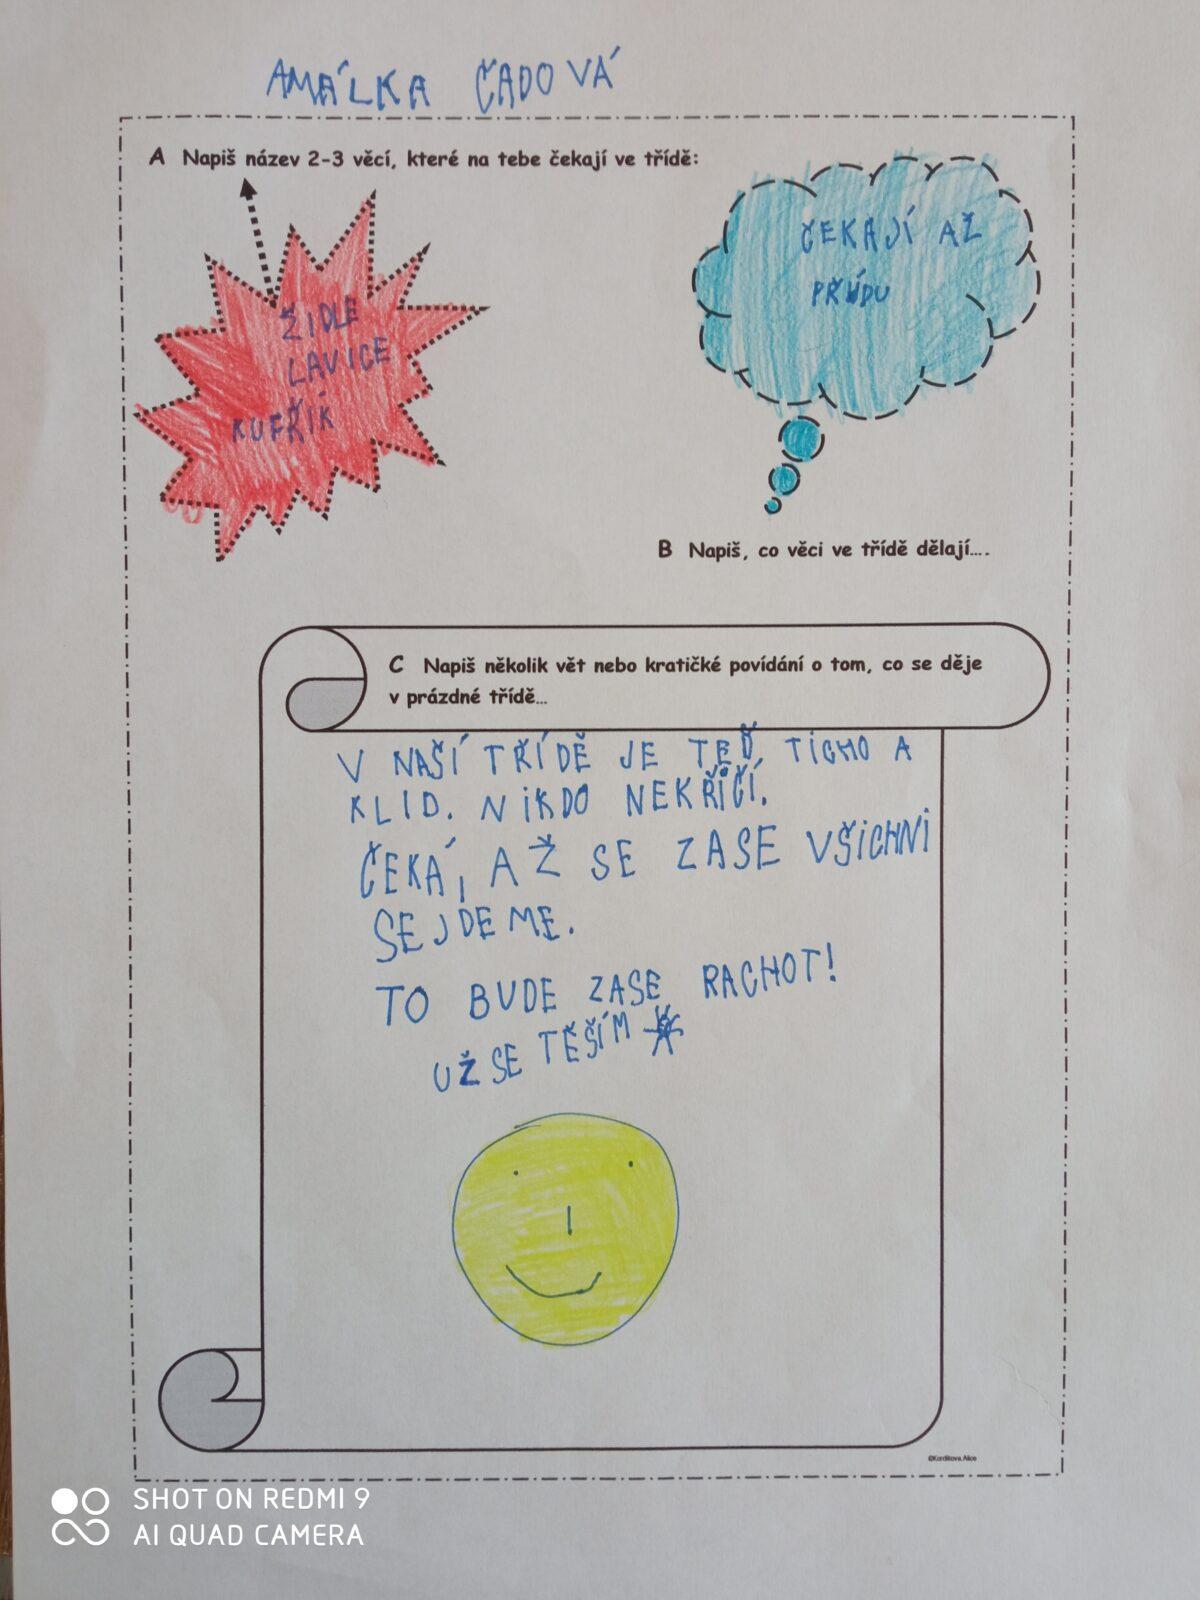 AMÁLKA ČADOVÁ
A Napiš název 2-3 věcí, které na tebe čekají ve třídě:
ŽIDLE
LAVICE
KUFŘÍK
ČEKAJÍ AŽ
PŘÍJDU
B Napiš, co věci ve třídě dělají....
C Napiš několik vět nebo kratičké povídání o tom, co se děje
v prázdné třídě...
V NAŠÍ TŘÍDĚ JE TEĎ TICHO A
KLID. NIKDO NEKŘIČÍ.
ČEKÁ, AŽ SE ZASE VŠICHNI
SEJDEME.
TO BUDE ZASE RACHOT!
UŽ SE TĚŠÍM
©Kordíkova.Alice
SHOT ON REDMI 9
AI QUAD CAMERA